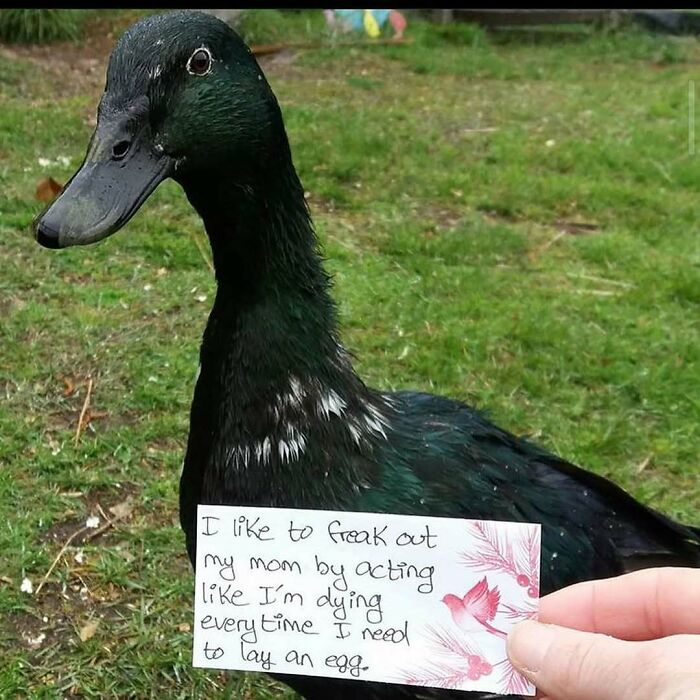 I like to freak out
my mom by acting
like I'm dying
everytime I need
to lay an egg.